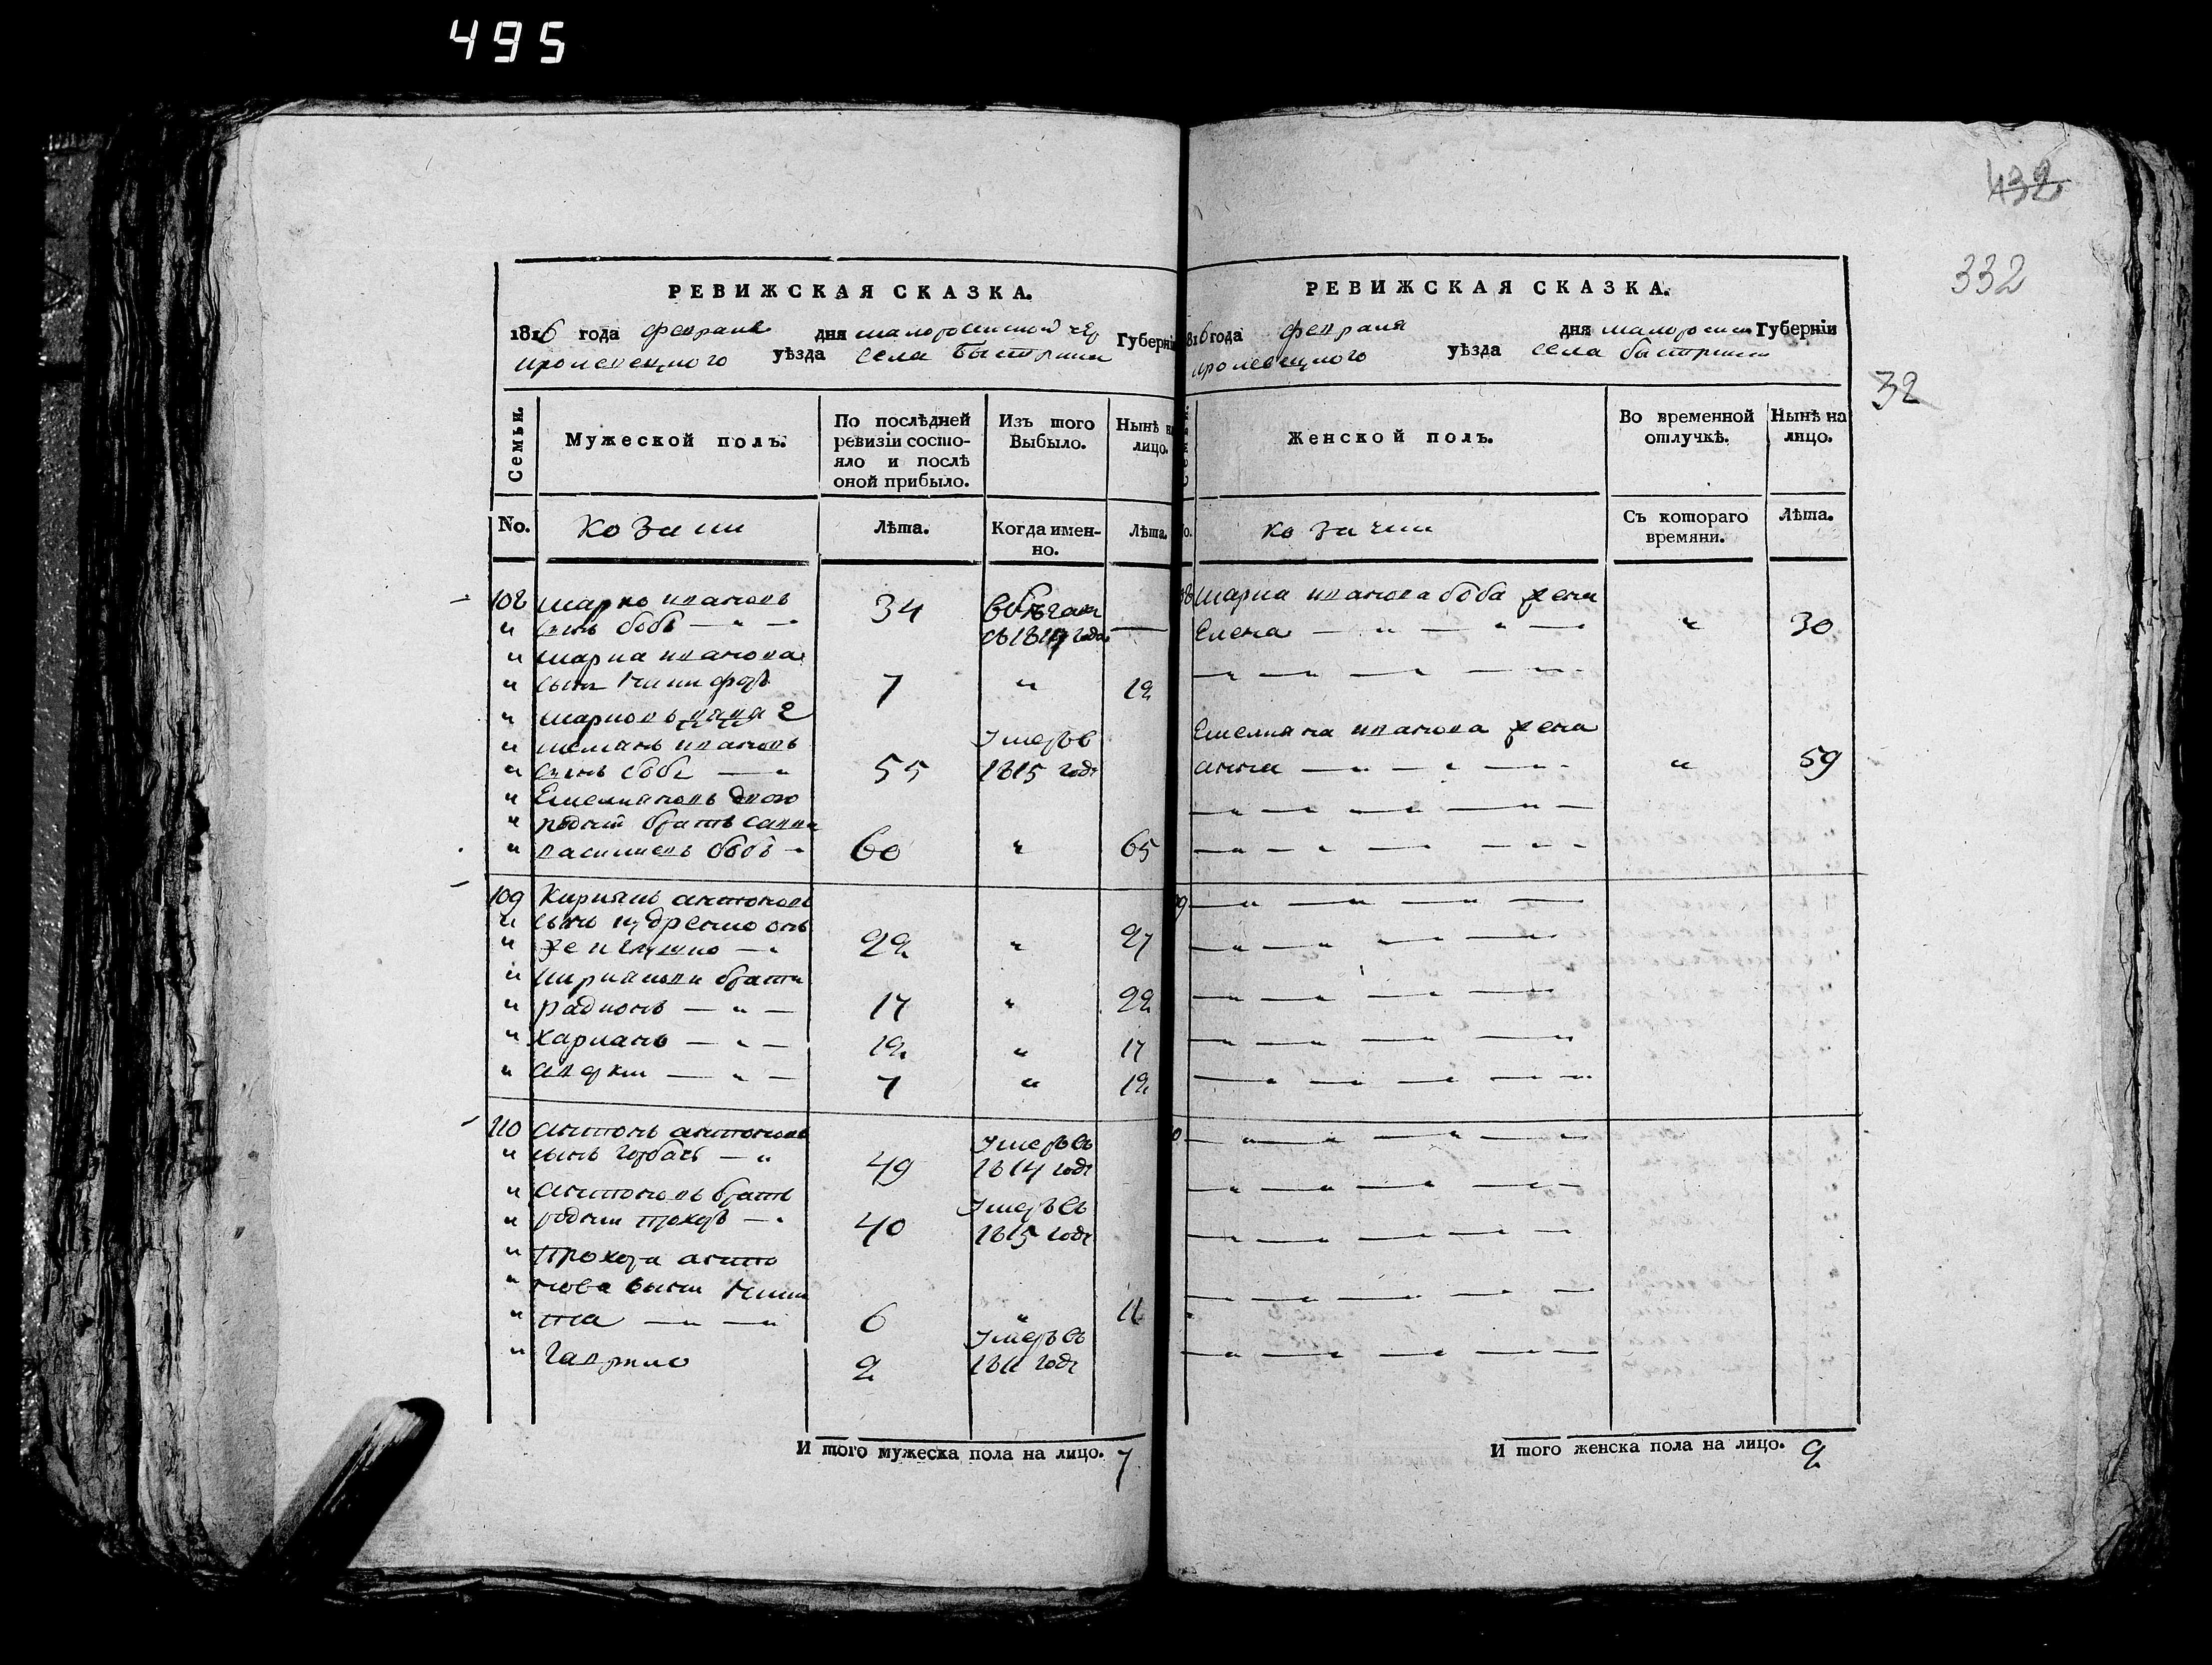 495
432
332
32
РЕВИЖСКАЯ СКАЗКА.
1816 года февраля дня малоросийской чер Губерніи
кролевецкого уѣзда села Быстрика
Семьи.
Мужеской полъ.
По послѣдней ревизіи состо-
яло и послѣ
оной прибыло.
Изъ того
Выбыло.
Нынѣ на
лицо.
No.
козаки
Лѣта.
Когда имен-
но.
Лѣта.
108 Марко ивановъ
сынъ бобъ 34 въ бѣгахъ съ 1814 года
Марка иванова
сынъ 7 12
Марковъ дядя 2
ивановъ
сынъ бобъ 55 Умеръ в 1815 годѣ
Емелиановъ двою
родний братъ савка
василиевъ бобъ 60 65
109 Кириянъ антоновъ
сынъ
же 22 27
Кирияновы брати
радионъ 17 22
Хариано 12 17
7 12
110 антонъ антоновъ
сынъ горбачъ 49 Умеръ въ 1814 годѣ
антоновъ братъ
родний прохоръ 40 Умеръ въ 1815 годѣ
Прохора анто
нова сыни Ники
та 6 11
Гаврило 2 Умеръ въ 1811 годѣ
И того мужеска пола на лицо. 7
РЕВИЖСКАЯ СКАЗКА.
1816 года февраля дня малоросий Губерніи
кролевецкого уѣзда села быстрика
Семьи.
Женской полъ.
Во временной
отлучкѣ.
Нынѣ на
лицо.
No.
козачки
Съ котораго
времяни.
Лѣта.
108 Марка иванова боба жена
Елена 30
Емелиана иванова жена
анна 59
109
110
И того женска пола на лицо. 2